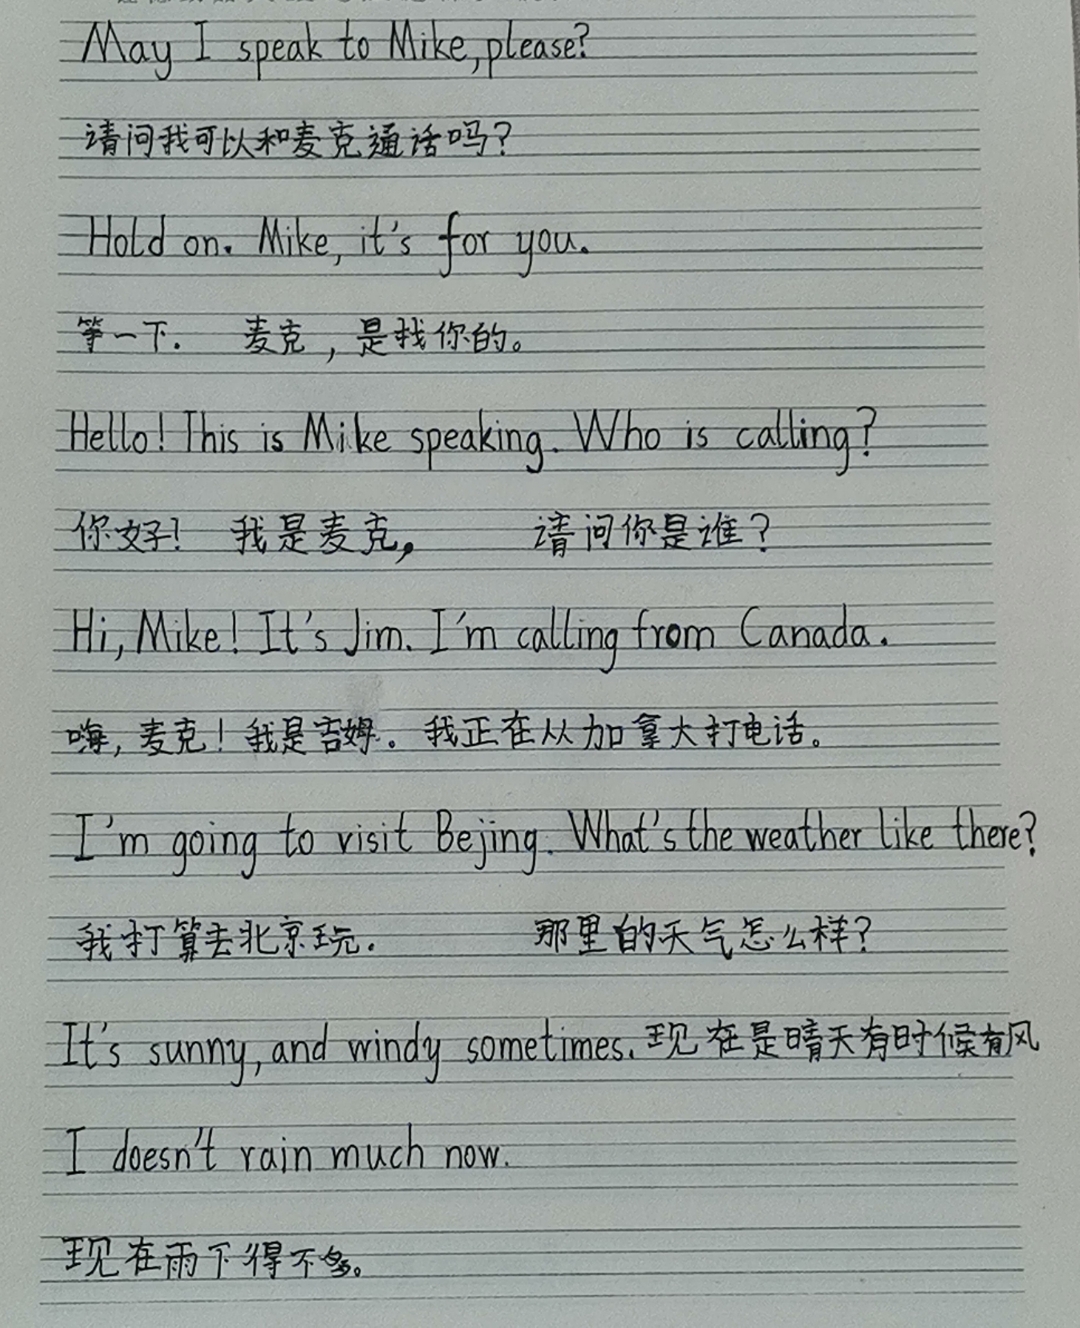 May I speak to Mike, please?
请问我可以和麦克通话吗?
Hold on. Mike, it's for you.
等一下. 麦克,是找你的。
Hello! This is Mike speaking. Who is calling?
你好! 我是麦克, 请问你是谁?
Hi, Mike! It's Jim. I'm calling from Canada.
嗨,麦克!我是吉姆。我正在从加拿大打电话。
I'm going to visit Bejing. What's the weather like there?
我打算去北京玩. 那里的天气怎么样?
It's sunny, and windy sometimes. 现在是晴天有时候有风
I doesn't rain much now.
现在雨下得不多。